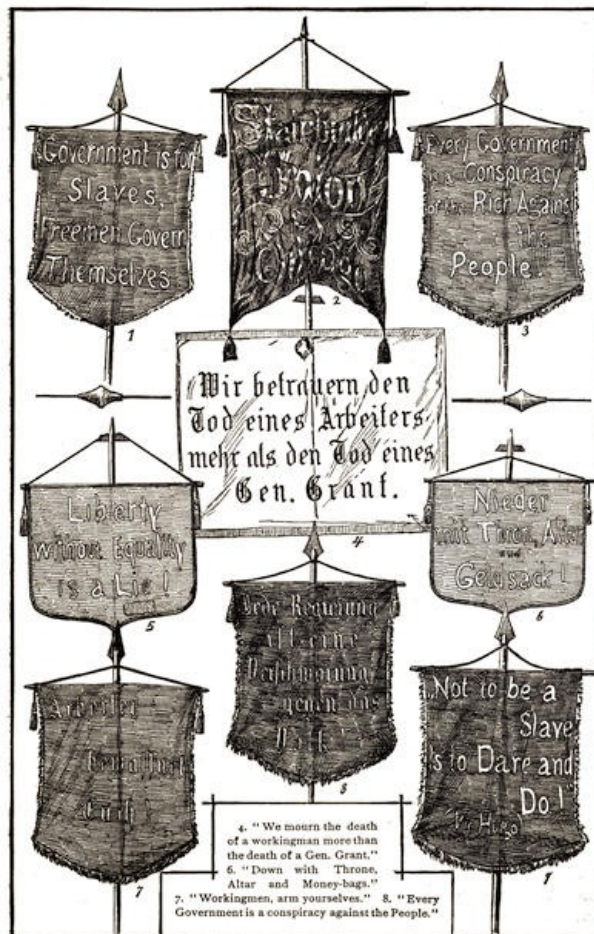 Government is for
Slaves,
Freemen Govern
Themselves
1
Union
Chicago
2
Every Government
is a Conspiracy
of the Rich Against
the
People."
3
Wir betrauern den
Tod eines Arbeiters
mehr als den Tod eines
Gen. Grant.
4
Liberty
without Equality
is a Lie!
5
Nieder
mit Thron, Altar
und
Geldsack!
6
Arbeiter
bewaffnet
Euch!
7
Jede Regierung
ist eine
Verschwörung
gegen das
Volk
8
"Not to be a
Slave
is to Dare and
Do!"
Vr Hugo
9
4. "We mourn the death
of a workingman more than
the death of a Gen. Grant."
6. "Down with Throne,
Altar and Money-bags."
7. "Workingmen, arm yourselves." 8. "Every
Government is a conspiracy against the People."